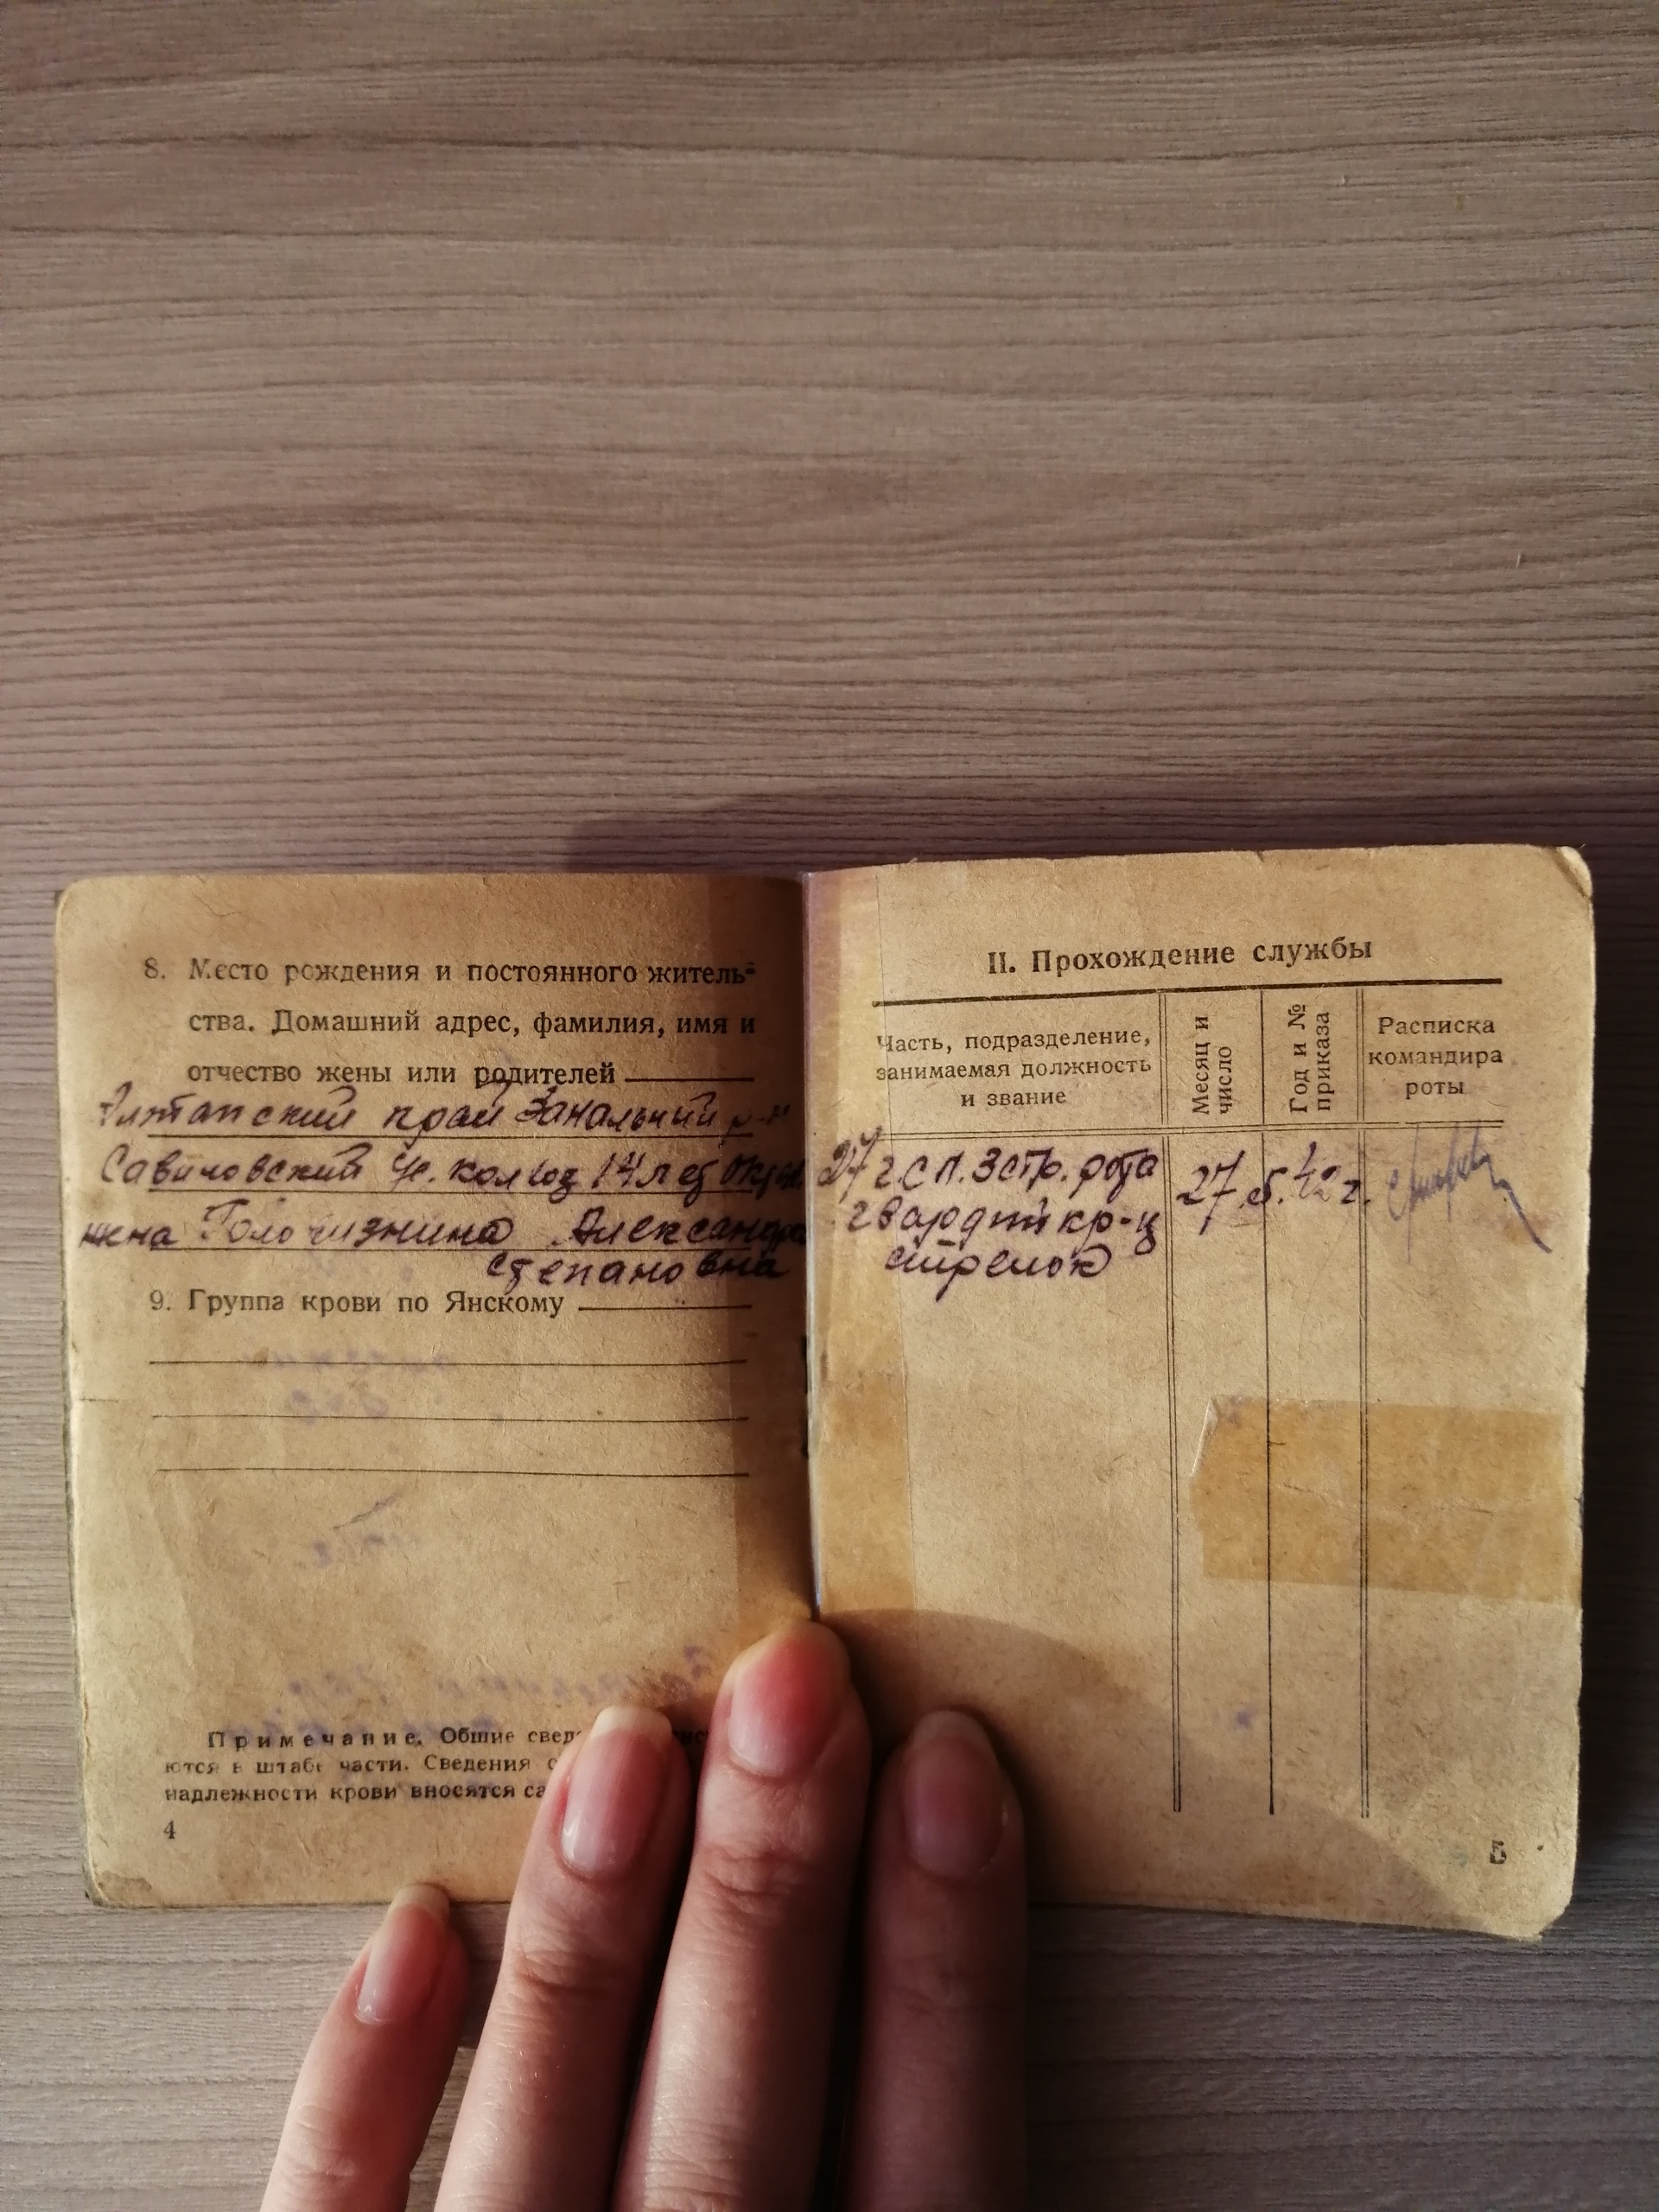 8. Место рождения и постоянного житель-
ства. Домашний адрес, фамилия, имя и
отчество жены или родителей
Алтапский край Занальный р-н
Савиновский с. колхоз 14 лет Октя
жена Голочизнина Александра
степановна
9. Группа крови по Янскому
Примечание. Общие свед
ются в штабе части. Сведения о
надлежности крови вносятся са
4
II. Прохождение службы
Часть, подразделение,
занимаемая должность
и звание
Месяц и
число
Год и №
приказа
Расписка
командира
роты
27 г.С П. 3 стр. рота
27.5.42 г.
гвардии кр-ц
стрелок
5